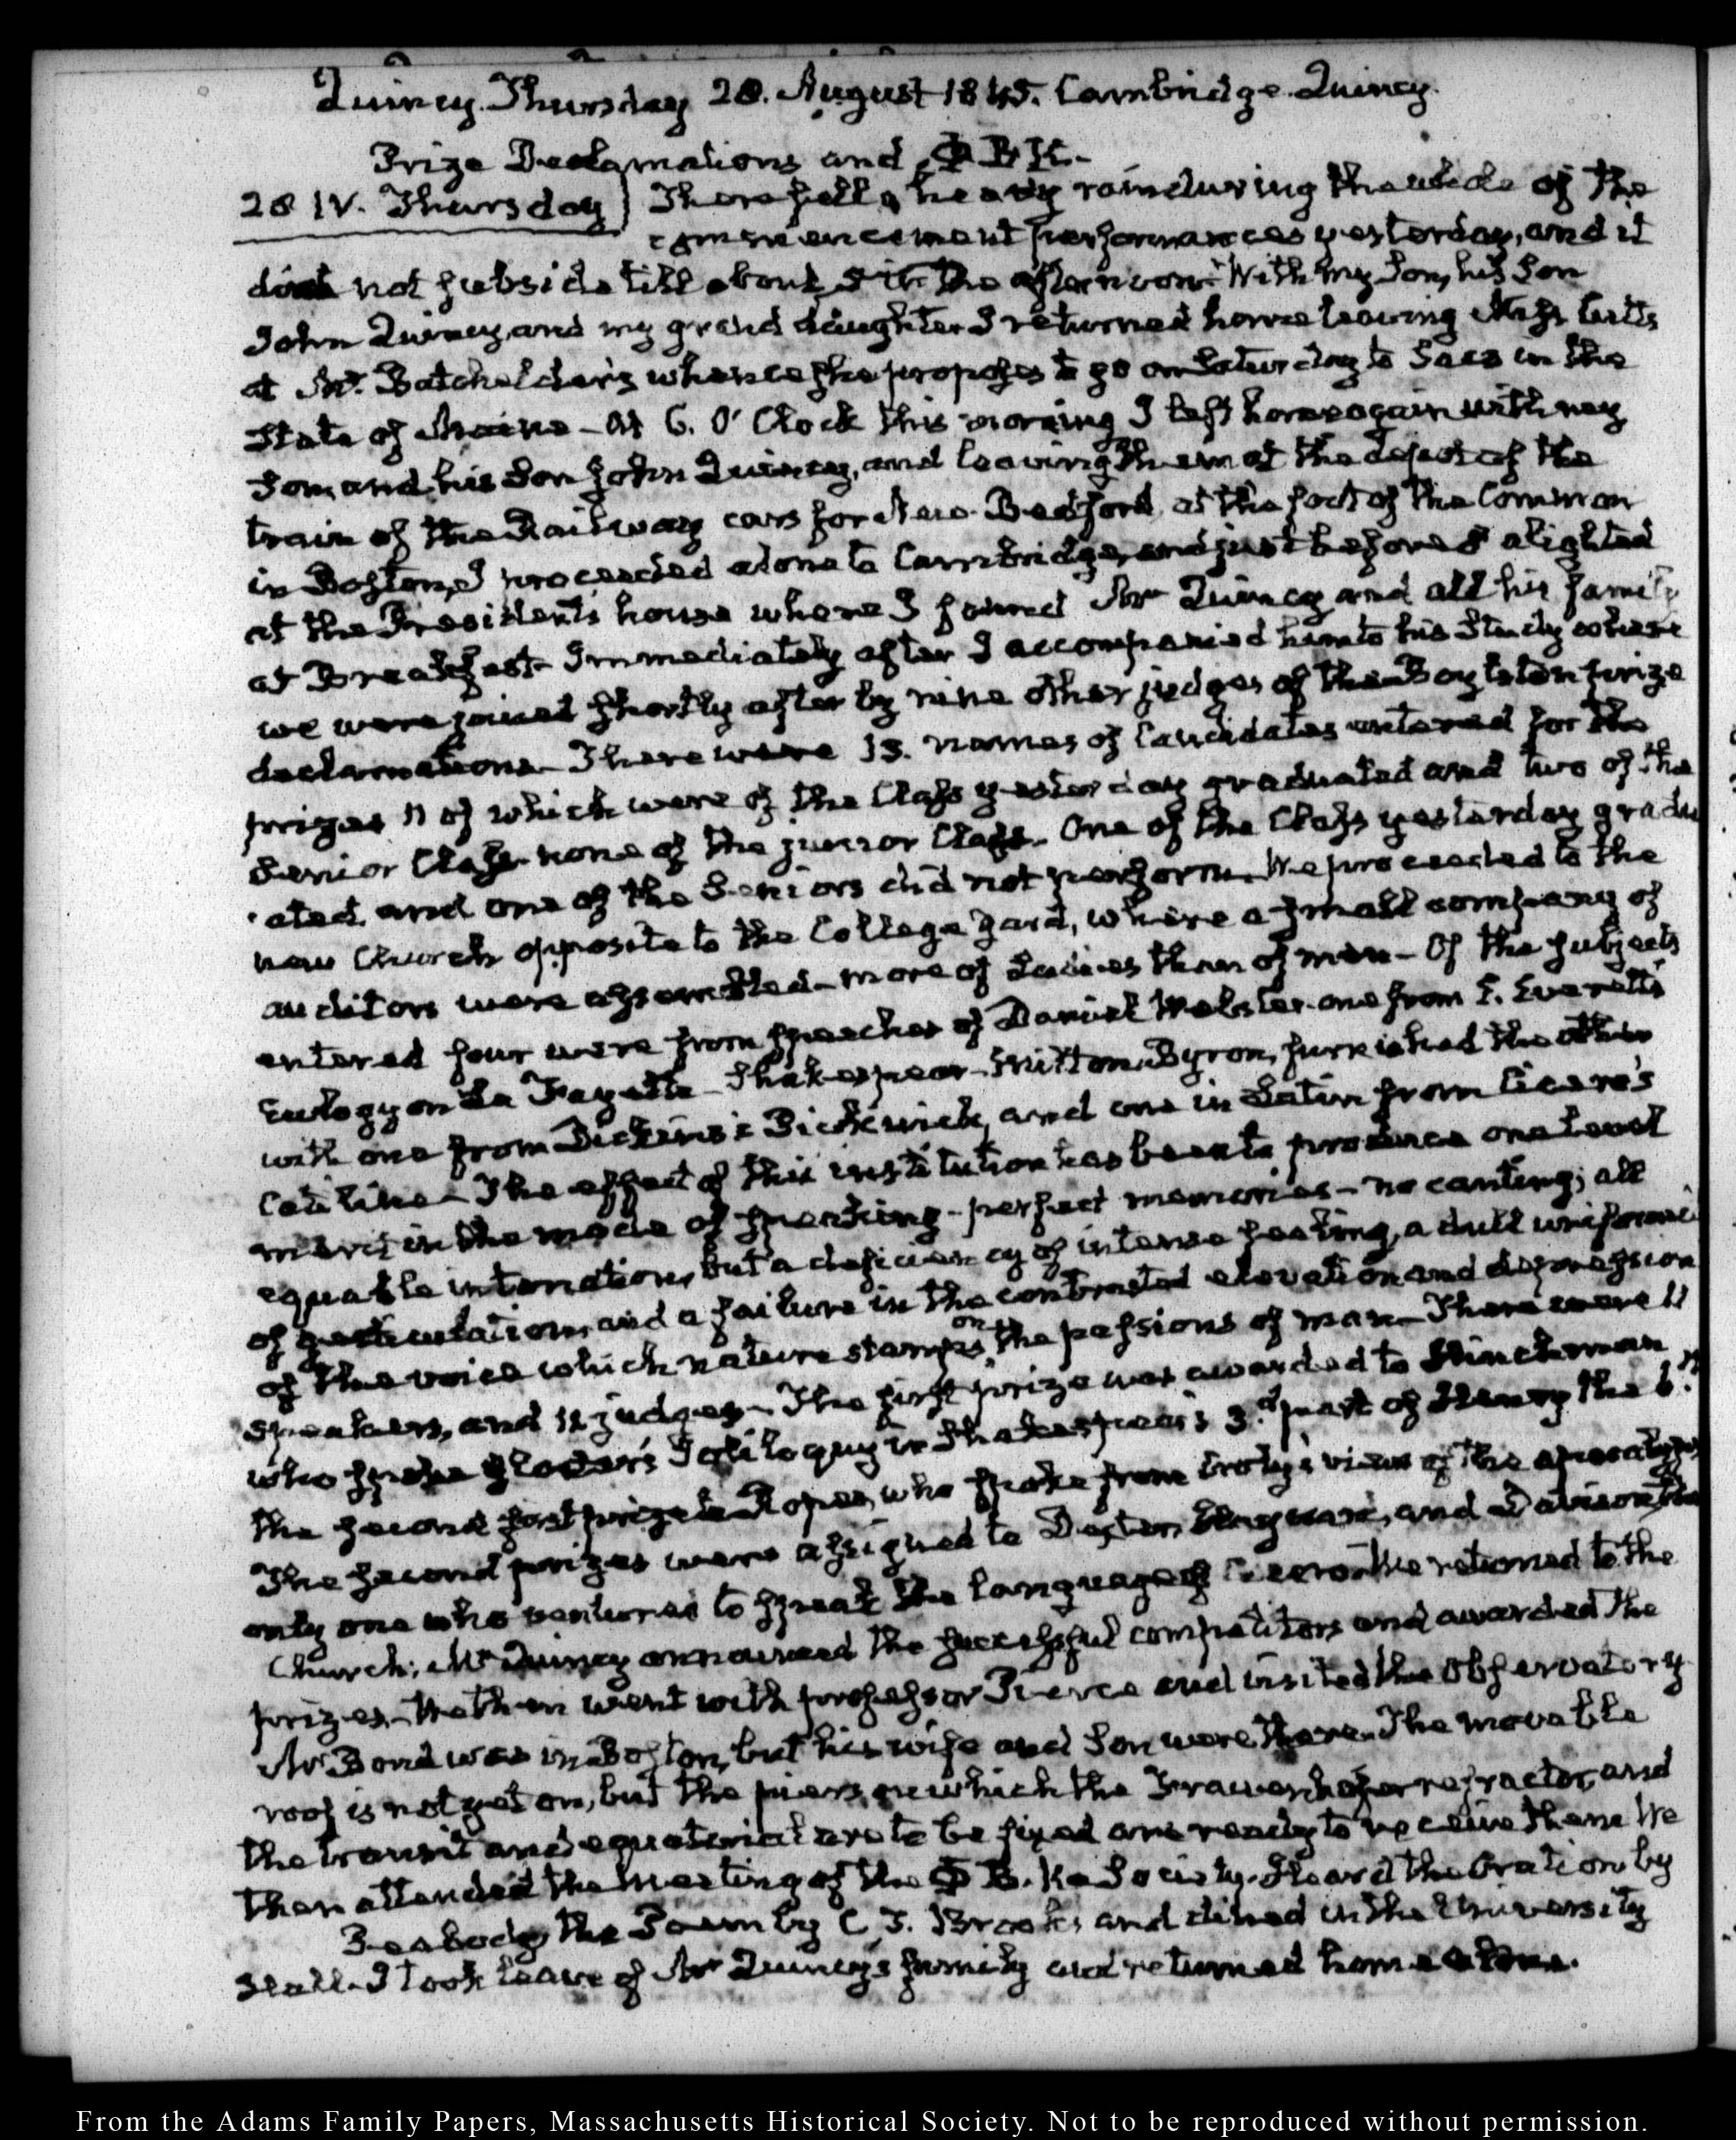 Quincy. Thursday 28. August 1845. Cambridge. Quincy.
Prize Declamations and Φ B K.-
28 IV. Thursday) There fell a heavy rain during the whole of the
commencement performances yesterday, and it
did not subside till about 5 in the afternoon. With my Son, his Son
John Quincy, and my grand daughter I returned home leaving Miss Cutts
at Mr. Batchelder's whence she proposes to go on Saturday to Saco in the
State of Maine - At 6. O'Clock this morning I left home again with my
Son, and his Son John Quincy, and leaving them at the depot of the
train of the Railway cars for New-Bedford, at the foot of the Common
in Boston, I proceeded alone to Cambridge, and just before 8 alighted
at the President's house where I found Mr Quincy and all his family
at Breakfast- Immediately after I accompanied him to his Study where
we were joined shortly after by nine other judges of the Boylston prize
declamations. There were 13. names of Candidates entered for the
prizes 11 of which were of the Class yesterday graduated and two of the
Senior Class- none of the junior Class. One of the Class yesterday gradu
ated. and one of the Seniors did not perform. We proceeded to the
new Church opposite to the College yard, where a small company of
auditors were assembled - more of Ladies than of men - Of the subjects
entered four were from speeches of Daniel Webster. one from E. Everett's
Eulogy on La Fayette - Shakespear - Milton, Byron, furnished the others
with one from Dickens's Pickwick, and one in Latin from Cicero's
Catiline - The effect of this institution has been to produce one level
merit in the mode of speaking - perfect memories - no canting; all
equable intonation, but a deficiency of intense feeling, a dull uniformi
of gesticulation, and a failure in the contrasted elevation and depression
of the voice which nature stamps on the passions of man - There were 11
speakers, and 11 judges - The first prize was awarded to Hinckman
who spoke Gloster's Soliloquy in Shakespear's 3d. part of Henry the 6.th
the second first prize to Ropes, who spoke from Croly's view of the apocalypse
The second prizes were assigned to Dexter, and Davison the
only one who ventured to speak the language of Cicero. We returned to the
Church; Mr Quincy announced the successful competitors and awarded the
prizes. We then went with professor Pierce and visited the Observatory
Mr Bond was in Boston, but his wife and Son were there. The movable
roof is not yet on, but the piers on which the Frawenhofer refractor, and
the transit and equatorial are to be fixed are ready to receive them We
then attended the meeting of the Φ B. Ka Society. Heard the Oration by
Peabody, the Poem by C. T. Brooks and dined in the University
Hall - I took leave of Mr Quincy's family and returned home alone.
From the Adams Family Papers, Massachusetts Historical Society. Not to be reproduced without permission.